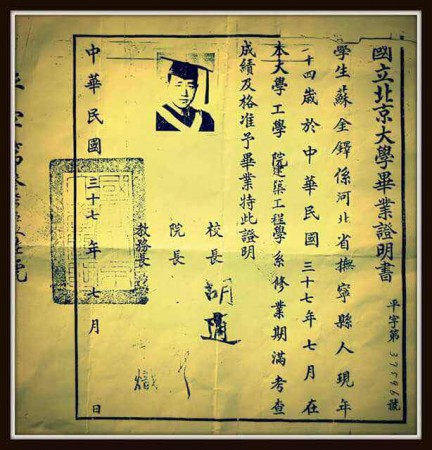 國立北京大學畢業證明書
平字第37596號
學生蘇金鐸係河北省撫寧縣人現年
二十四歲於中華民國三十七年七月在
本大學工學院建築工程學系修業期滿考查
成績及格准予畢業特此證明
校長 胡適
院長
教務長
中華民國三十七年七月 日